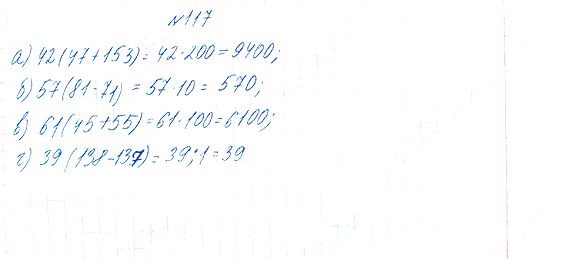 №117
а) 42(47+153)=42·200=9400;
б) 57(81-71)=57·10=570;
в) 61(45+55)=61·100=6100;
г) 39(138-137)=39:1=39